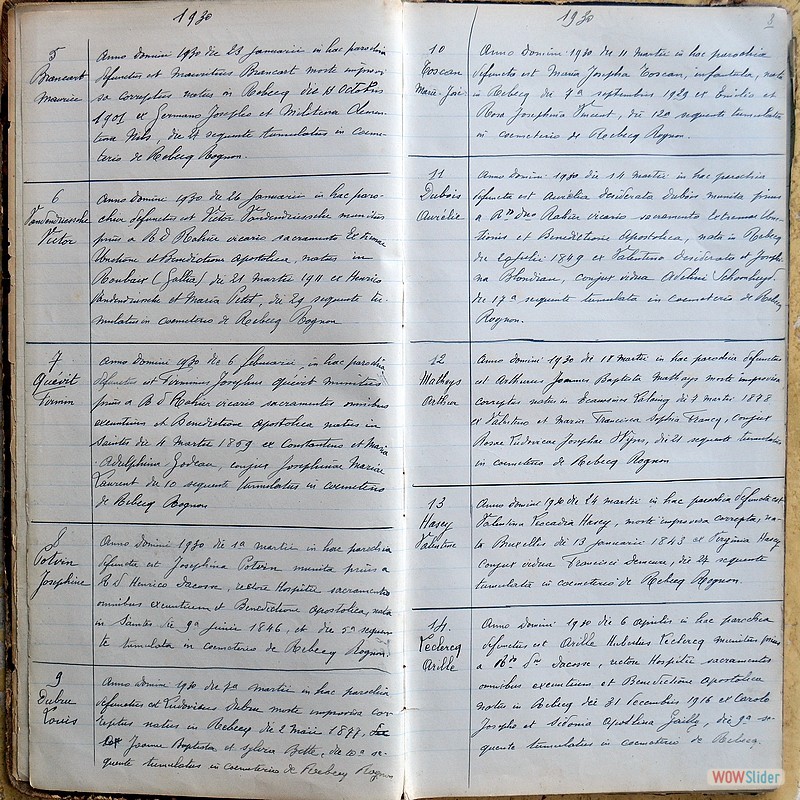 1930
5
Brancart
Maurice
Anno Domini 1930 die 23 Januarii in hac parochia
defunctus est Mauritius Brancart morte improvi
sa correptus natus in Rebecq die 14 Octobris
1901 ex Germano Josepho et
die 27 sequente tumulatus in coeme
terio de Rebecq Rognon.
6
Vandendriessche
Victor
Anno Domini 1930 die 26 Januarii in hac paro-
chia defunctus est Victor Vandendriessche munitus
prius a R D Rahier vicario sacramento Extremae
Unctione et Benedictione Apostolica, natus in
Roubaix (Gallia) die 21 Martii 1911 ex Henrico
Vandendriessche et Maria Petit, die 29 sequente tu-
mulatus in coemeterio de Rebecq Rognon
7
Quévit
Firmin
Anno Domini 1930 die 6 februarii, in hac parochia
defunctus est Firminus Josephus Quévit munitus
prius a R D Rahier vicario sacramentis omnibus
exeuntium et Benedictione Apostolica natus in
Saintes die 4 Martii 1859 ex Constantino et Maria
Adelphina Godeau, conjux Josephinae Mariae
Laurent die 10 sequente tumulatus in coemeterio
de Rebecq Rognon
8
Potvin
Josephine
Anno Domini 1930 die 1a martii in hac parochia
defuncta est Josephina Potvin munita prius a
R D Henrico Dacosse, rectore Hospitii sacramentis
omnibus exeuntium et Benedictione Apostolica, nata
in Saintes die 9a Junii 1846, et die 5a sequen
te tumulata in coemeterio de Rebecq Rognon.
9
Dubru
Louis
Anno Domini 1930 die 7a martii in hac parochia
defunctus est Ludovicus Dubru morte improvisa cor-
reptus natus in Rebecq die 2 Maii 1877,
ex Joanne Baptista et Sylvia Bette, die 10a se-
quente tumulatus in coemeterio de Rebecq Rognon
1930
10
Toscan
Marie-Josée
Anno Domini 1930 die 11 Martii in hac parochia
defuncta est Maria Josepha Toscan, infantula, nata
in Rebecq die 7a septembris 1929 ex Emilio et
Rosa Josephina Vincent, die 12a sequente tumulata
in coemeterio de Rebecq Rognon.
11
Dubois
Aurélie
Anno Domini 1930 die 14 Martii in hac parochia
defuncta est Aurelia Desiderata Dubois munita prius
a Rdo Dno Rahier vicario sacramento Extremae Unc-
tionis et Benedictione Apostolica, nata in Rebecq
die 1849 ex Valentino Desiderato et Josephi
na Blondiau, conjux vidua Adelini
die 17a sequente tumulata in coemeterio de Rebecq
Rognon.
12
Matheys
Arthur
Anno Domini 1930 die 18 Martii in hac parochia defunctus
est Arthurus Joannes Baptista Matheys morte improvisa
correptus natus in Ecaussines Lalaing die 7 martii 1878
ex Valentino et Maria Francisca Sophia Francq, conjux
Rosae Ludovicae Josephae die 21 sequente tumulatus
in coemeterio de Rebecq Rognon
13
Hasey
Valentine
Anno Domini 1930 die 24 martii in hac parochia defuncta est
Valentina Leocadia Hasey, morte improvisa correpta, na-
ta Bruxelles die 13 Januarii 1843 ex Virginia Hasey
conjux vidua Francisci Demeure, die 27 sequente
tumulata in coemeterio de Rebecq Rognon.
14.
Leclercq
Arille
Anno Domini 1930 die 6 Aprilis in hac parochia
defunctus est Arille Hubertus Leclercq munitus prius
a Rdo Dno Dacosse, rectore Hospitii sacramentis
omnibus exeuntium et Benedictione Apostolica
natus in Rebecq die 31 Decembris 1916 ex Carolo
Josepho et Sidonia Apollina Gailly, die 9a se-
quente tumulatus in coemeterio de Rebecq.
WOWSlider